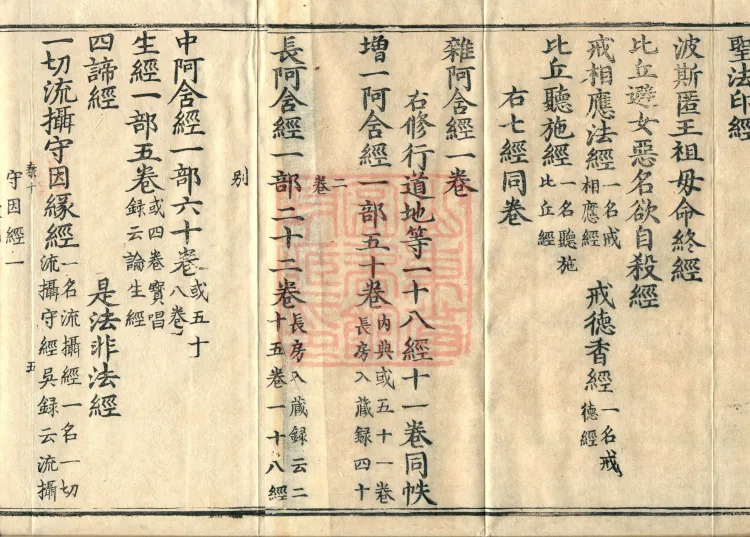 聖法印經
波斯匿王祖毋命終經
比丘避女惡名欲自殺經
戒相應法經一名戒相應經 戒德香經一名戒德經
比丘聽施經一名聽施比丘經
右七經同卷
雜阿含經一卷
右修行道地等一十八經十一卷同帙
增一阿含經一部五十卷內典或五十一卷長房入藏録四十二卷
長阿含經一部二十二卷長房入藏録云二十五卷一十八經別
中阿含經一部六十卷或五十八卷
生經一部五卷或四卷寶唱録云論生經
四諦經 是法非法經
一切流攝守因緣經一名流攝經一名一切流攝守經吳録云流攝守因經一